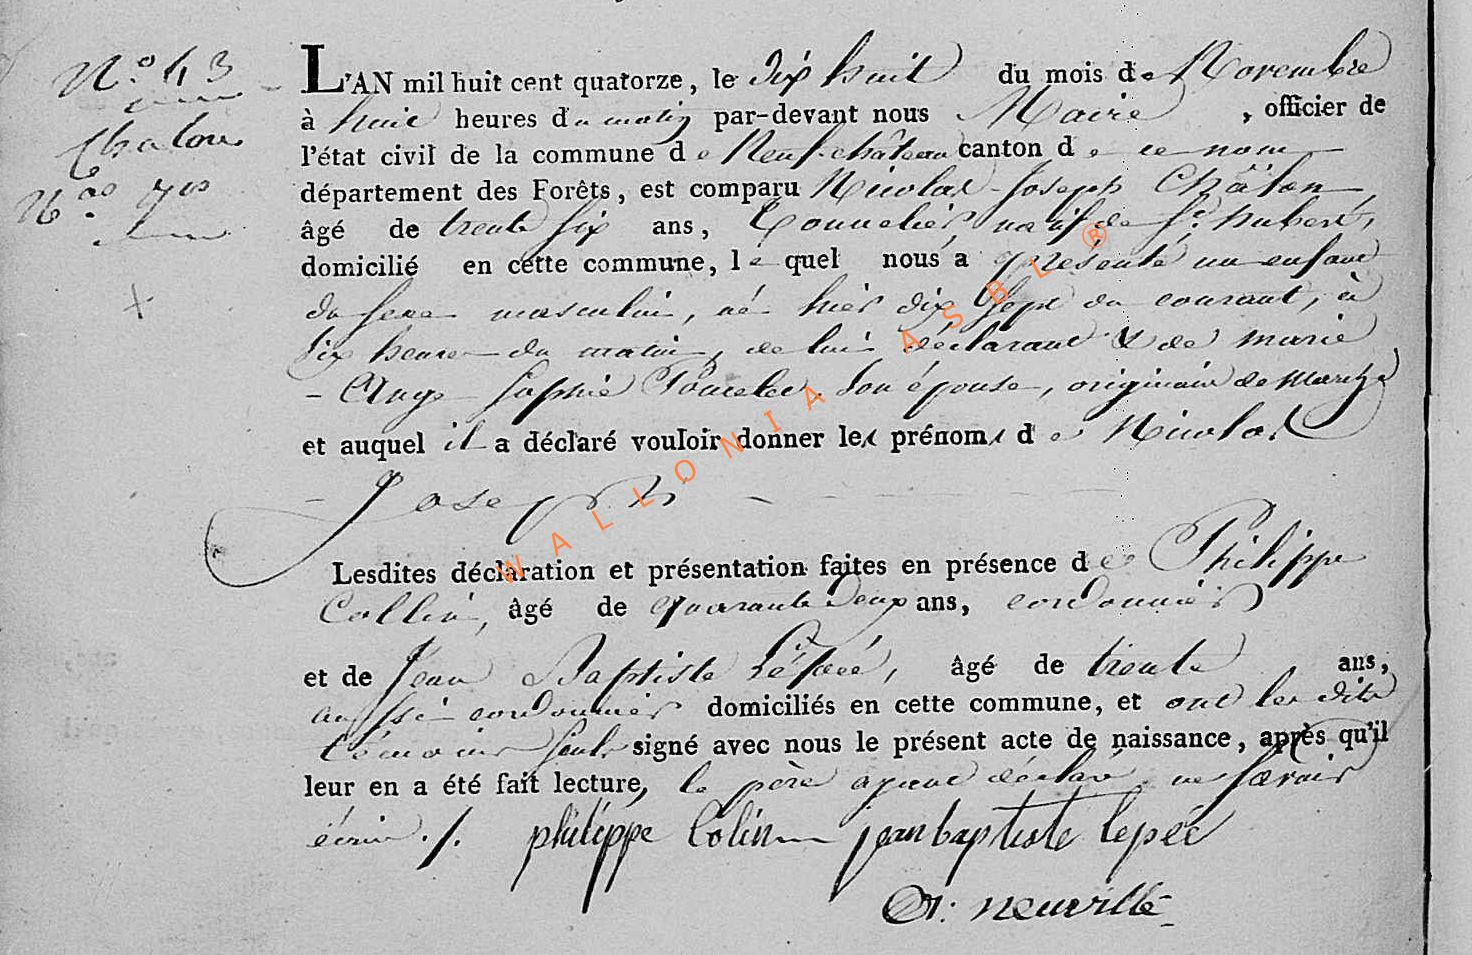 N.° 43
Chalon
N.as Jph
+
L'AN mil huit cent quatorze, le dix huit du mois de Novembre
à huit heures du matin par-devant nous Maire , officier de
l'état civil de la commune de Neufchâteau canton de ce nom
département des Forêts, est comparu Nicolas Joseph Châlon,
âgé de trente six ans, Tonnelier, natif de St. hubert,
domicilié en cette commune, lequel nous a présenté un enfant
du sexe masculin, né hier dix Sept du courant, à
six heures du matin, de lui déclarant & de marie
- Ange Sophie son épouse, originaire de
et auquel il a déclaré vouloir donner les prénoms de Nicolas
- Joseph -
Lesdites déclaration et présentation faites en présence de Philippe
Collin, âgé de quarante deux ans, cordonnier
et de Jean Baptiste Lépée, âgé de trente ans,
aussi cordonnier domiciliés en cette commune, et ont les dits
témoins seuls signé avec nous le présent acte de naissance, après qu'il
leur en a été fait lecture, le père ayant déclaré ne savoir
écrire ./. philippe Colin jean baptiste lepée
neuville
WALLONIA ASBL ®